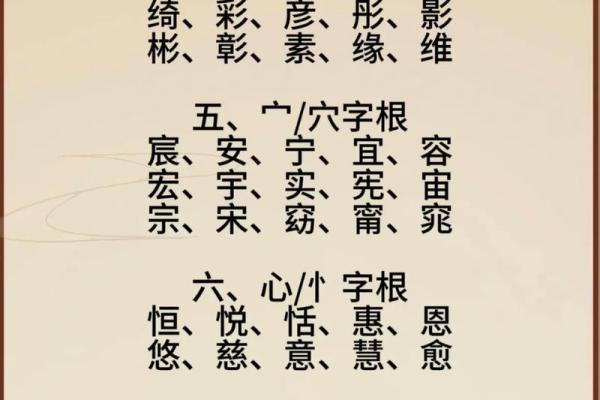 绮、彩、彦、彤、影
彬、彰、素、缘、维
五、宀/穴字根
宸、安、宁、宜、容
宏、宇、实、宪、宙
宗、宋、窈、甯、窕
六、心/忄字根
恒、悦、恬、惠、恩
悠、慈、意、慧、愈